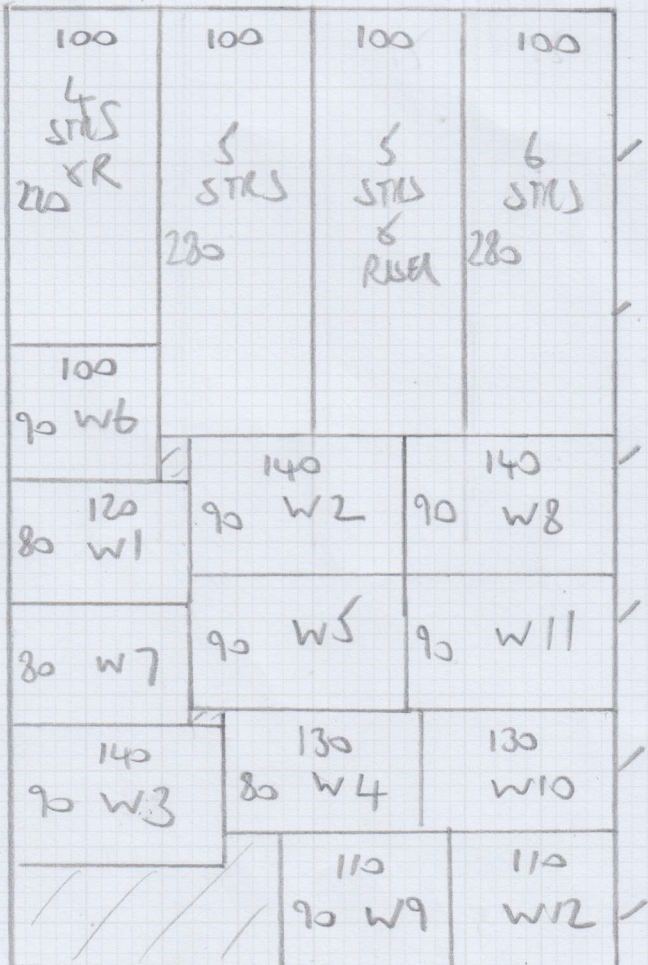 100
4
STRS
& R
220
100
5
STRS
280
100
5
STRS
&
RISER
100
6
STRS
280
100
90 W6
120
80 W1
80 W7
140
90 W3
140
90 W2
140
90 W8
90 W5
90 W11
130
80 W4
130
W10
110
90 W9
110
W12